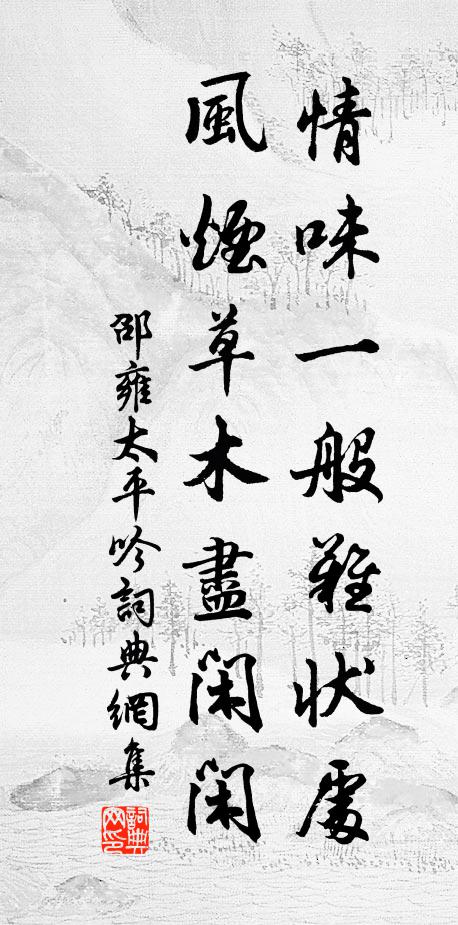 情味一般難狀處
風煙草木盡閑閑
邵雍太平吟詞典網集
詞典网印